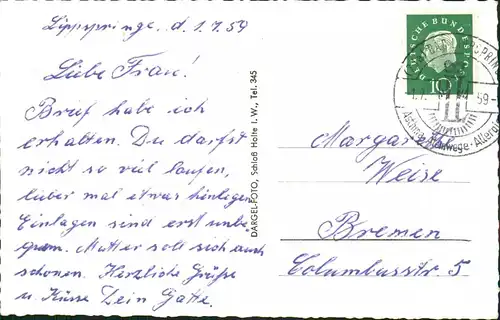 Lippspringe, d. 1.7.59
Liebe Frau!
Brief habe ich
erhalten. Du darfst
nicht so viel laufen,
lieber mal etwas hinlegen
Einlagen sind erst unbe-
quem. Mutter soll sich auch
schonen. Herzliche Grüße
u. Küsse Dein Gatte.
DARGEL-FOTO, Schloß Holte i. W., Tel. 345
DEUTSCHE BUNDESPOST
10
59
Margarethe
Weise
Bremen
Columbusstr. 5